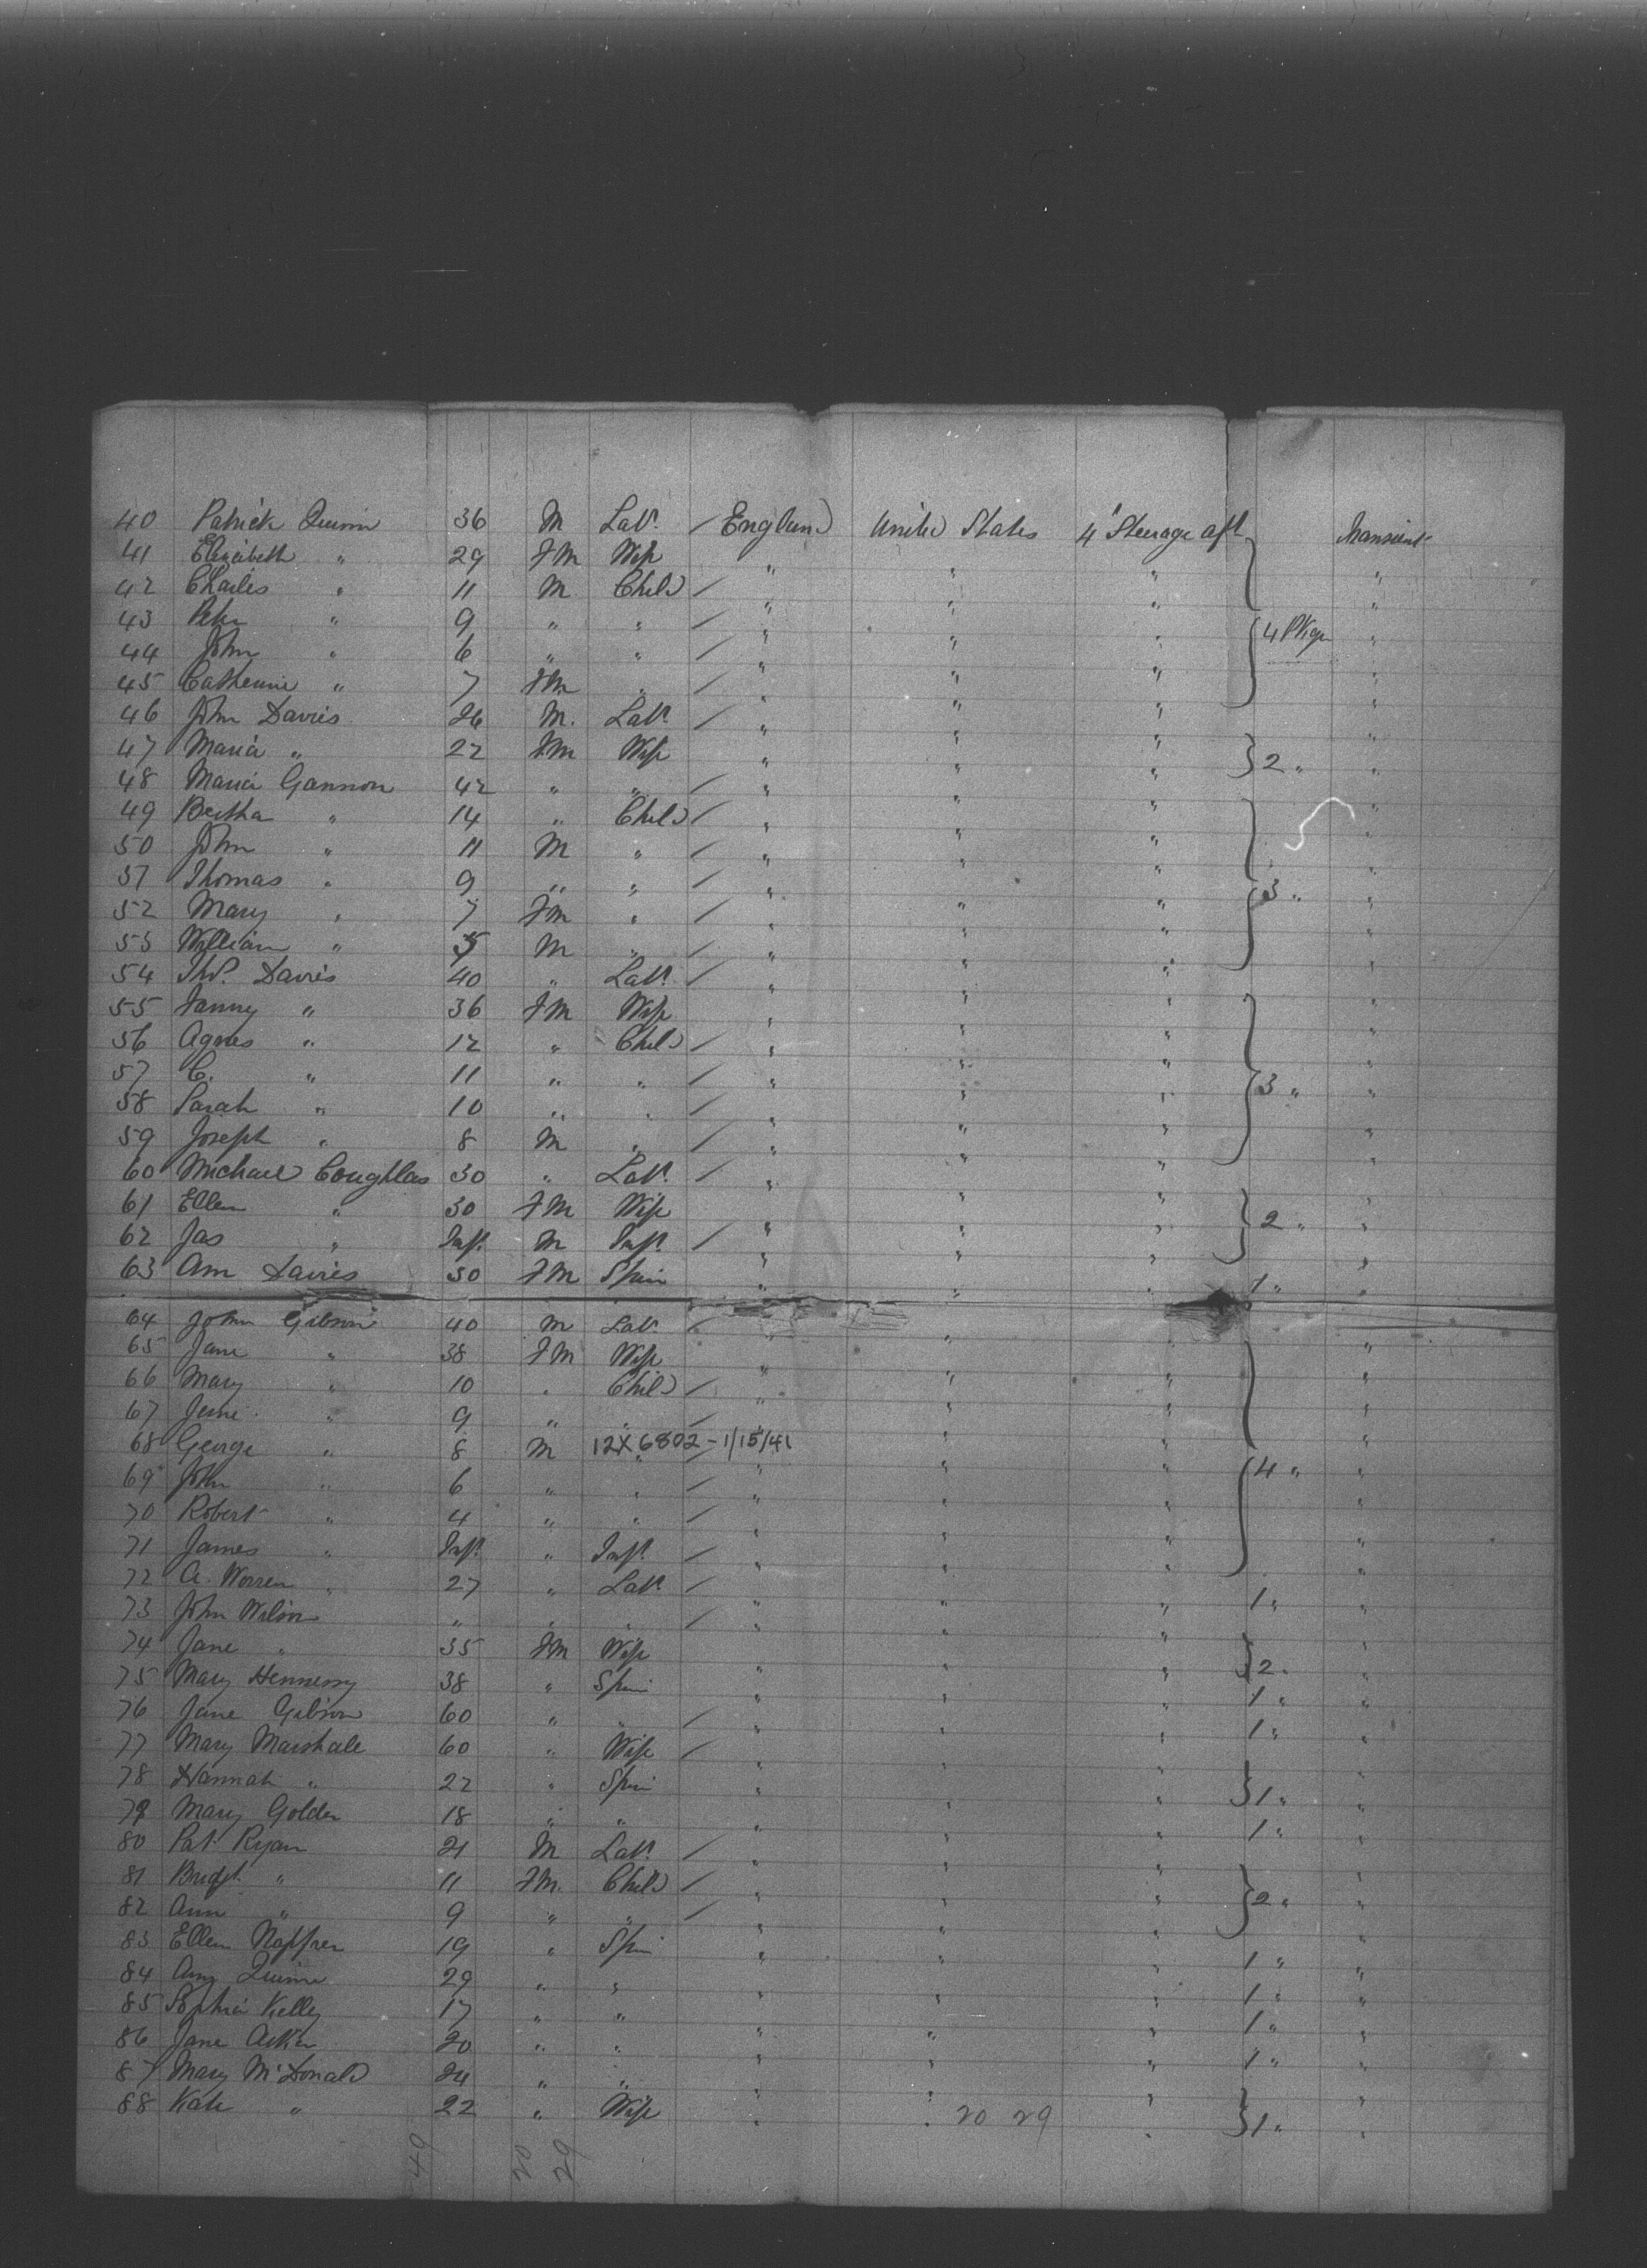 40 Patrick Quinn 36 M Labr. / England United States 4' Steerage aft Transient
41 Elizabeth " 29 FM Wife " " " "
42 Charles " 11 M Child / " " " "
43 Peter " 9 " " / " " " 4 Pkgs "
44 John " 6 " " / " " " "
45 Catherine " 7 FM " / " " " "
46 John Davies 26 M. Labr. / " " " "
47 Maria " 22 FM Wife " " " 2 " "
48 Maria Gannon 42 " " / " " " "
49 Bertha " 14 " Child / " " " "
50 John " 11 M " / " " " "
51 Thomas " 9 " " / " " " 3 " "
52 Mary " 7 FM " / " " " "
53 William " 5 M " / " " " "
54 Thos. Davies 40 " Labr. / " " " "
55 Fanny " 36 FM Wife " " " "
56 Agnes " 12 " Child / " " " "
57 C. " 11 " " / " " " 3 " "
58 Sarah " 10 " " / " " " "
59 Joseph " 8 M " / " " " "
60 Michael Coughlas 30 " Labr. / " " " "
61 Ellen " 30 FM Wife " " " 2 " "
62 Jas " Inft. M Inft. / " " " "
63 Ann Davies 30 FM Spin " " " 1 " "
64 John Gibson 40 M Labr. / " " " "
65 Jane " 38 FM Wife " " " "
66 Mary " 10 " Child / " " " "
67 " 9 " " / " " " "
68 George " 8 M 12X6802-1/15/41 " / " " " "
69 John " 6 " " / " " " 4 " "
70 Robert " 4 " " / " " " "
71 James " Inft. " Inft. / " " " "
72 A. Warren " 27 " Labr. / " " " 1 " "
73 John Wilson " " " / " " " "
74 Jane " 35 FM Wife " " " 2 " "
75 Mary Hennessy 38 " Spin " " " 1 " "
76 Jane Gibson 60 " " / " " " 1 " "
77 Mary Marshall 60 " Wife / " " " "
78 Hannah " 22 " Spin " " " 1 " "
79 Mary Golden 18 " " " " " 1 " "
80 Pat Ryan 21 M Labr. / " " " "
81 Bridgt. " 11 FM. Child / " " " 2 " "
82 Ann " 9 " " / " " " "
83 Ellen 19 " Spin " " " 1 " "
84 Amy Quinn 29 " " " " " 1 " "
85 Sophia Kelly 17 " " " " " 1 " "
86 Jane 20 " " " " " 1 " "
87 Mary McDonald 24 " " " " " "
88 Kate " 22 " Wife " " " 1 " "
20 29
49 20 29